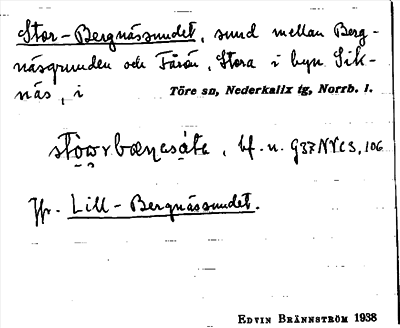 Stor-Bergnässundet, sund mellan Berg-
näsgrunden och Fårön, Stora i byn Sik-
näs, i Töre sn, Nederkalix tg, Norrb. l.
bf. n. G37NVC3, 106
Jfr. Lill-Bergnässundet.
EDVIN BRÄNNSTRÖM 1938